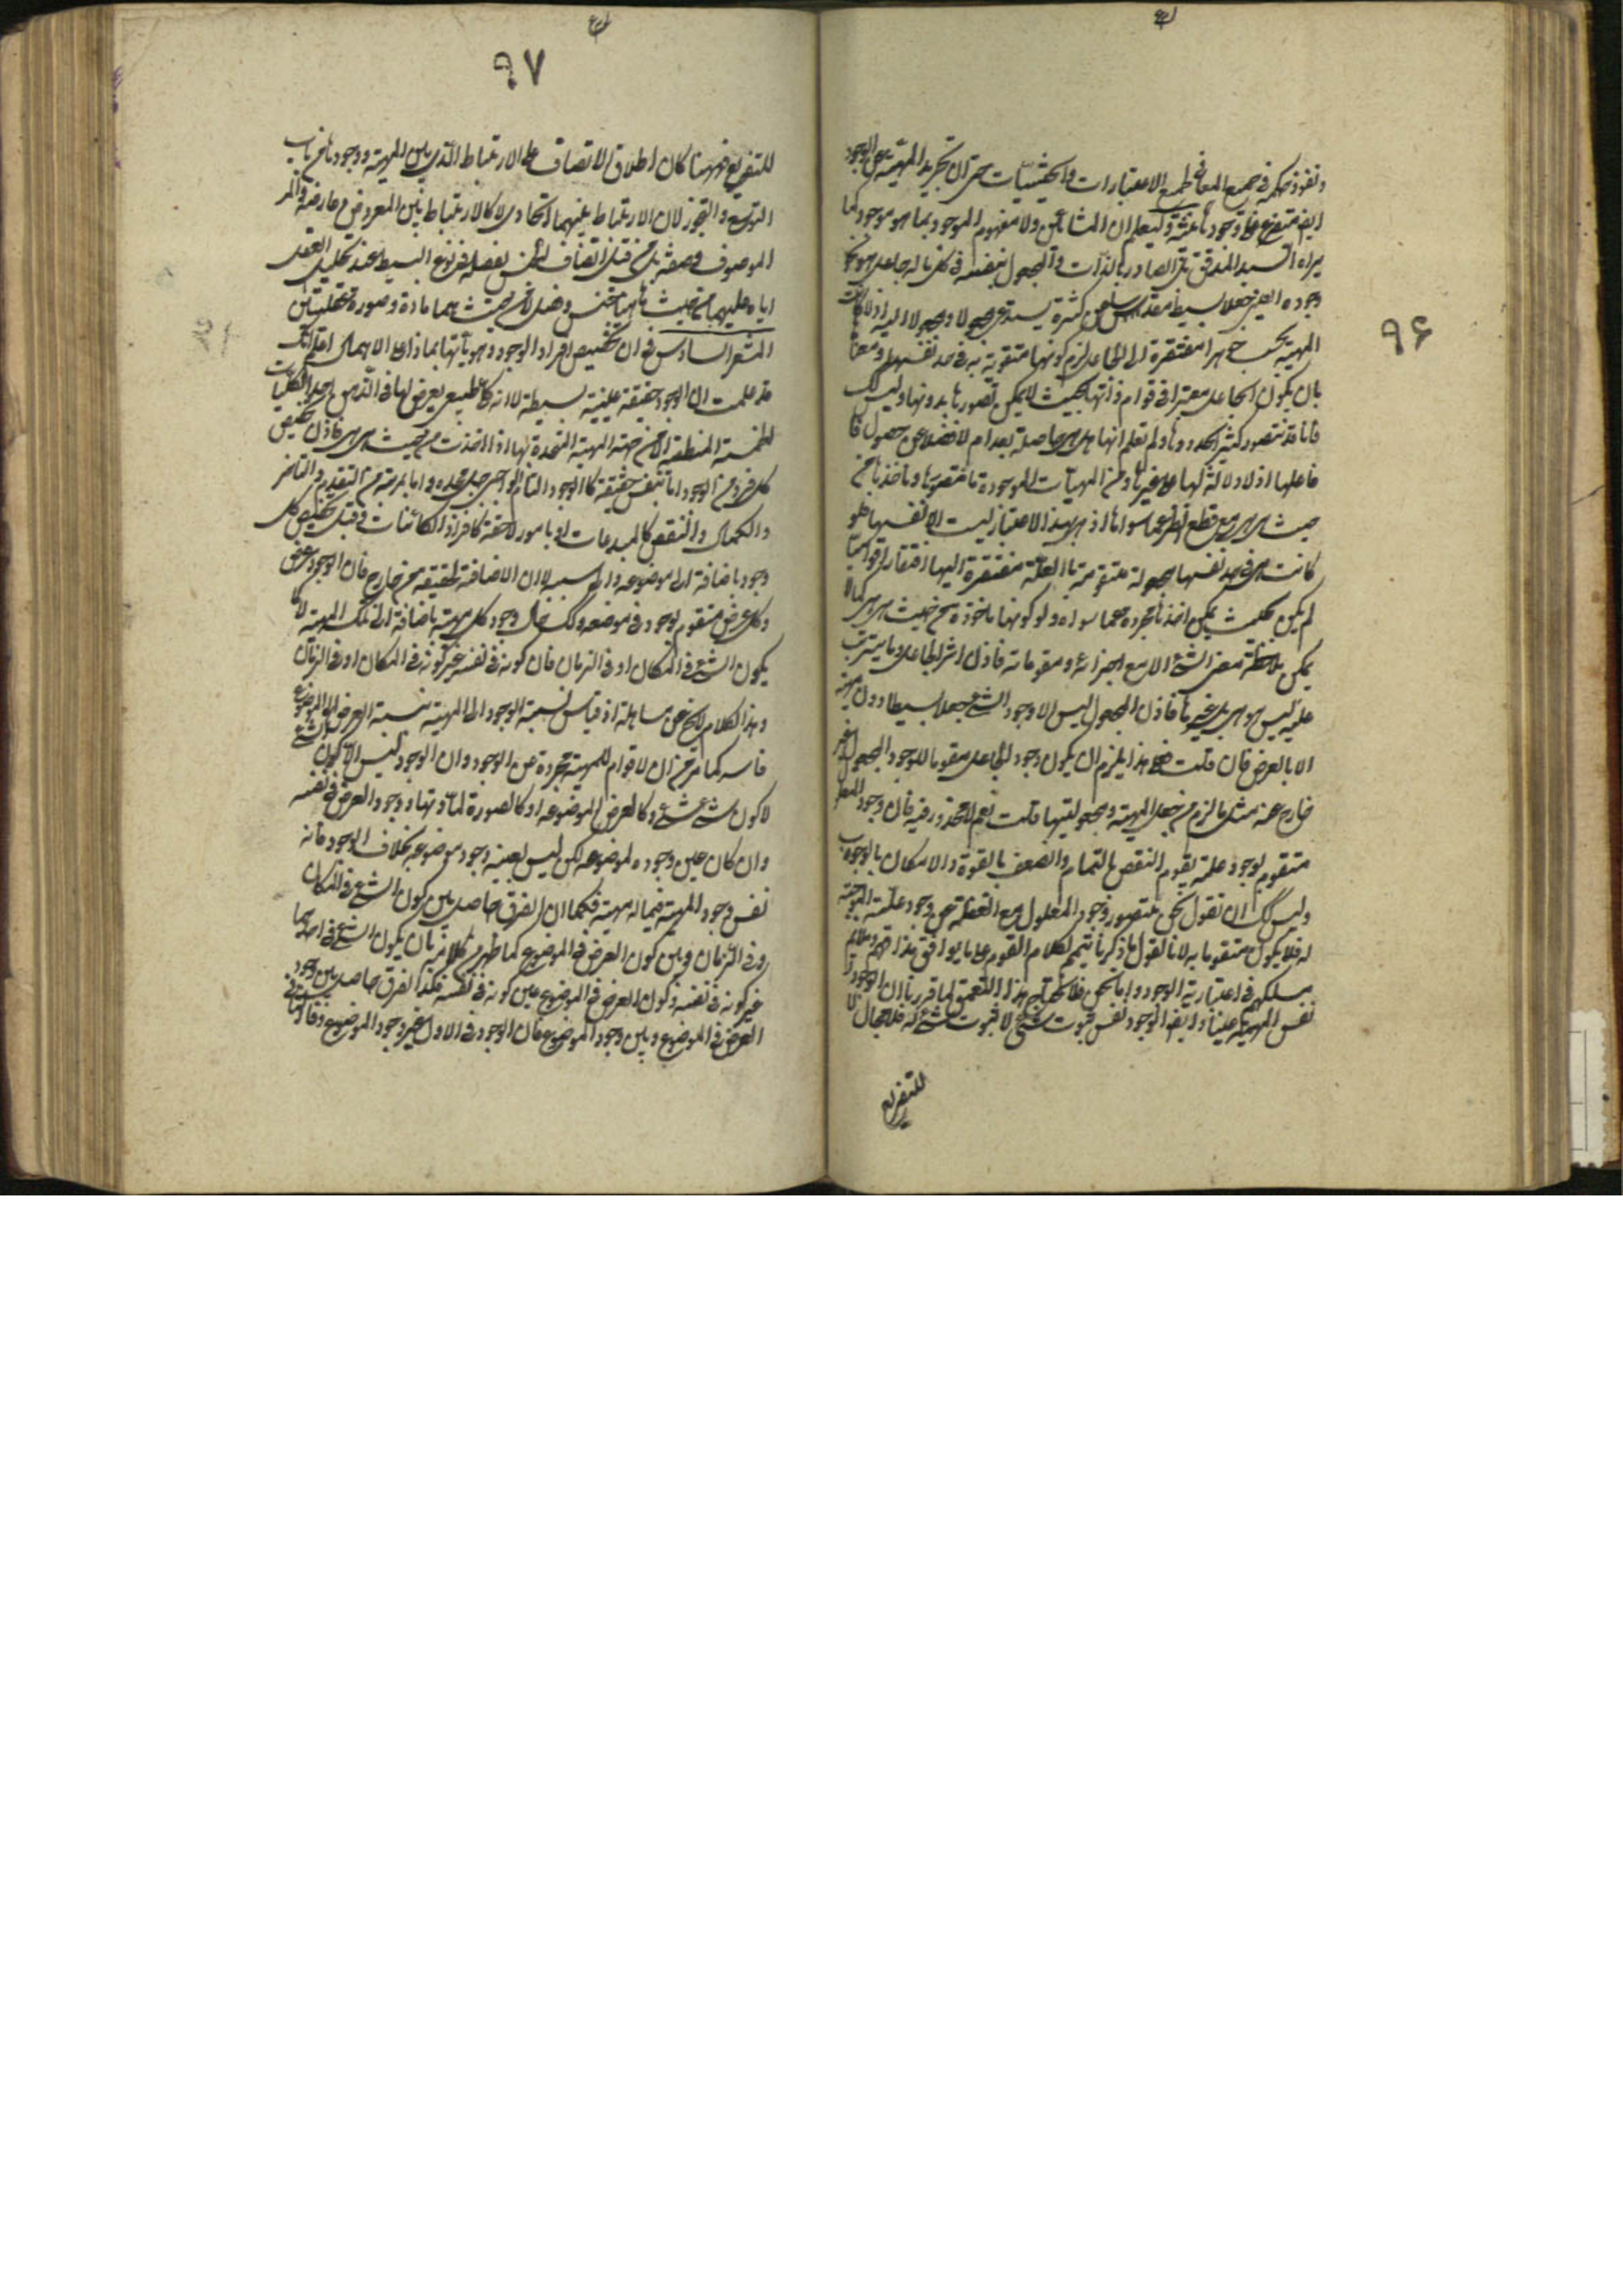 ٩۶
ونفوذ حكمه فى جميع المعانى بجميع الاعتبارات والحيثيات حتى ان تجريد المهية عن الوجود
ايضا متفرع على وجودها وليعلم ان المشائين ولا مفهوم الموجود بما هو موجود كما
يراه السيد المدقق بل الصادر بالذات والمجعول بنفسه فى كل ما له جاعل هو نحو
وجوده العينى جعلا بسيطا مقدسا عن كثرة يستدعى مجعولا ومجعولا اليه اذ لو كانت
المهية بحسب جوهرها مفتقرة الى الجاعل لزم كونها متقومة به فى حد نفسها ومعناها
بان يكون الجاعل معتبرا فى قوام ذاتها بحيث لا يمكن تصورها بدونه وليس كك
فانا قد نتصور كثيرا بحدودها ولم نعلم انها هل هى حاصلة بعد ام لا فضلا عن حصول
فاعلها اذ لا دلالة لها على غيرها ومن المهيات الموجودة ما نتصورها ونأخذها من
حيث هى هى مع قطع النظر عما سواها اذ هى بهذا الاعتبار ليست الا نفسها فلو
كانت هى فى حد نفسها مجعولة متقومة بالعلة مفتقرة اليها افتقارا قواميا
لم يكن بحيث يمكن اخذها مجردة عما سواها ولا كونها مأخوذة من حيث هى هى كما لا
يمكن ملاحظة معنى الشئ الا مع اجزائه ومقوماته فاذن اثر الجاعل وما يترتب
عليه ليس هو هى بل غيرها فاذن المجعول ليس الا وجود الشئ جعلا بسيطا دون مهيته
الا بالعرض فان قلت فعلى هذا يلزم ان يكون وجود الجاعل مقوما للوجود المجعول غير
خارج عنه مثل ما لزم من جعل المهية ومجعوليتها قلت نعم لا محذور فيه فان وجود المعلول
متقوم بوجود علته تقوم النقص بالتمام والضعف بالقوة والامكان بالوجوب
وليس لك ان تقول نحن نتصور وجود المعلول مع الغفلة عن وجود علته الموجبة
له فلا يكون متقوما به لانا نقول ما ذكرنا تتميم لكلام القوم على ما يوافق مذاقهم ويلائم
مسلكهم فى اعتبارية الوجود واما نحن فلا نحتاج الى هذا التعمق لما قررنا ان الوجود
نفس المهية عينا وايضا الوجود نفس ثبوت الشئ لا ثبوت شئ له فلا مجال
للتفريع
٩٧
للتفريع فههنا كان اطلاق الاتصاف على الارتباط الذى بين المهية ووجودها من باب
التوسع والتجوز لان الارتباط بينهما اتحادى لا كالارتباط بين المعروض وعارضه
الموصوف وصفته بل من قبيل اتصاف الجنس بفصله فى نوع البسيط عند تحليل العقل
اياه اليهما من حيث هما جنس وفصل لا من حيث هما مادة وصورة عقليتان
المشعر السادس فى ان تخصيص افراد الوجود وهوياتها بماذا على الاجمال اعلم انك
قد علمت ان الوجود حقيقة عينية بسيطة لا انه كلى طبيعى يعرض لها فى الذهن احد الكليات
الخمسة المنطقية الا من جهة المهية المتحدة بها اذا اخذت من حيث هى هى فاذن تخصيص
كل فرد من الوجود اما بنفس حقيقته كالوجود التام الواجبى جل مجده واما بمرتبة من التقدم والتأخر
والكمال والنقص كالمبدعات او بامور لاحقة كافراد الكائنات وقيل تخصيص كل
وجود باضافته الى موضوعه والى سببه لا ان الاضافة لحقته من خارج فان الوجود عرض
وكل عرض متقوم بوجوده فى موضوعه وكك حال وجود كل مهية باضافته الى تلك المهية لا كما
يكون الشئ فى المكان او فى الزمان فان كونه فى نفسه غير كونه فى المكان او فى الزمان
وهذا الكلام لا يخ عن مساهلة اذ قياس نسبة الوجود الى المهية بنسبة العرض الى الموضوع
فاسد كما مر من ان لا قوام للمهية مجردة عن الوجود وان الوجود ليس الا كون الشئ
لا كون شئ لشئ كالعرض لموضوعه او كالصورة لمادتها ووجود العرض فى نفسه
وان كان عين وجوده لموضوعه لكن ليس بعينه وجود موضوعه بخلاف الوجود فانه
نفس وجود المهية فيما له مهية فكما ان الفرق حاصل بين كون الشئ فى المكان
وفى الزمان وبين كون العرض فى الموضوع كما ظهر من كلامه بان يكون الشئ فى احدهما
غير كونه فى نفسه وكون العرض فى الموضوع عين كونه فى نفسه فكذا الفرق حاصل بين وجود
العرض فى الموضوع وبين وجود الموضوع فان الوجود فى الاول غير وجود الموضوع وفى الثانى